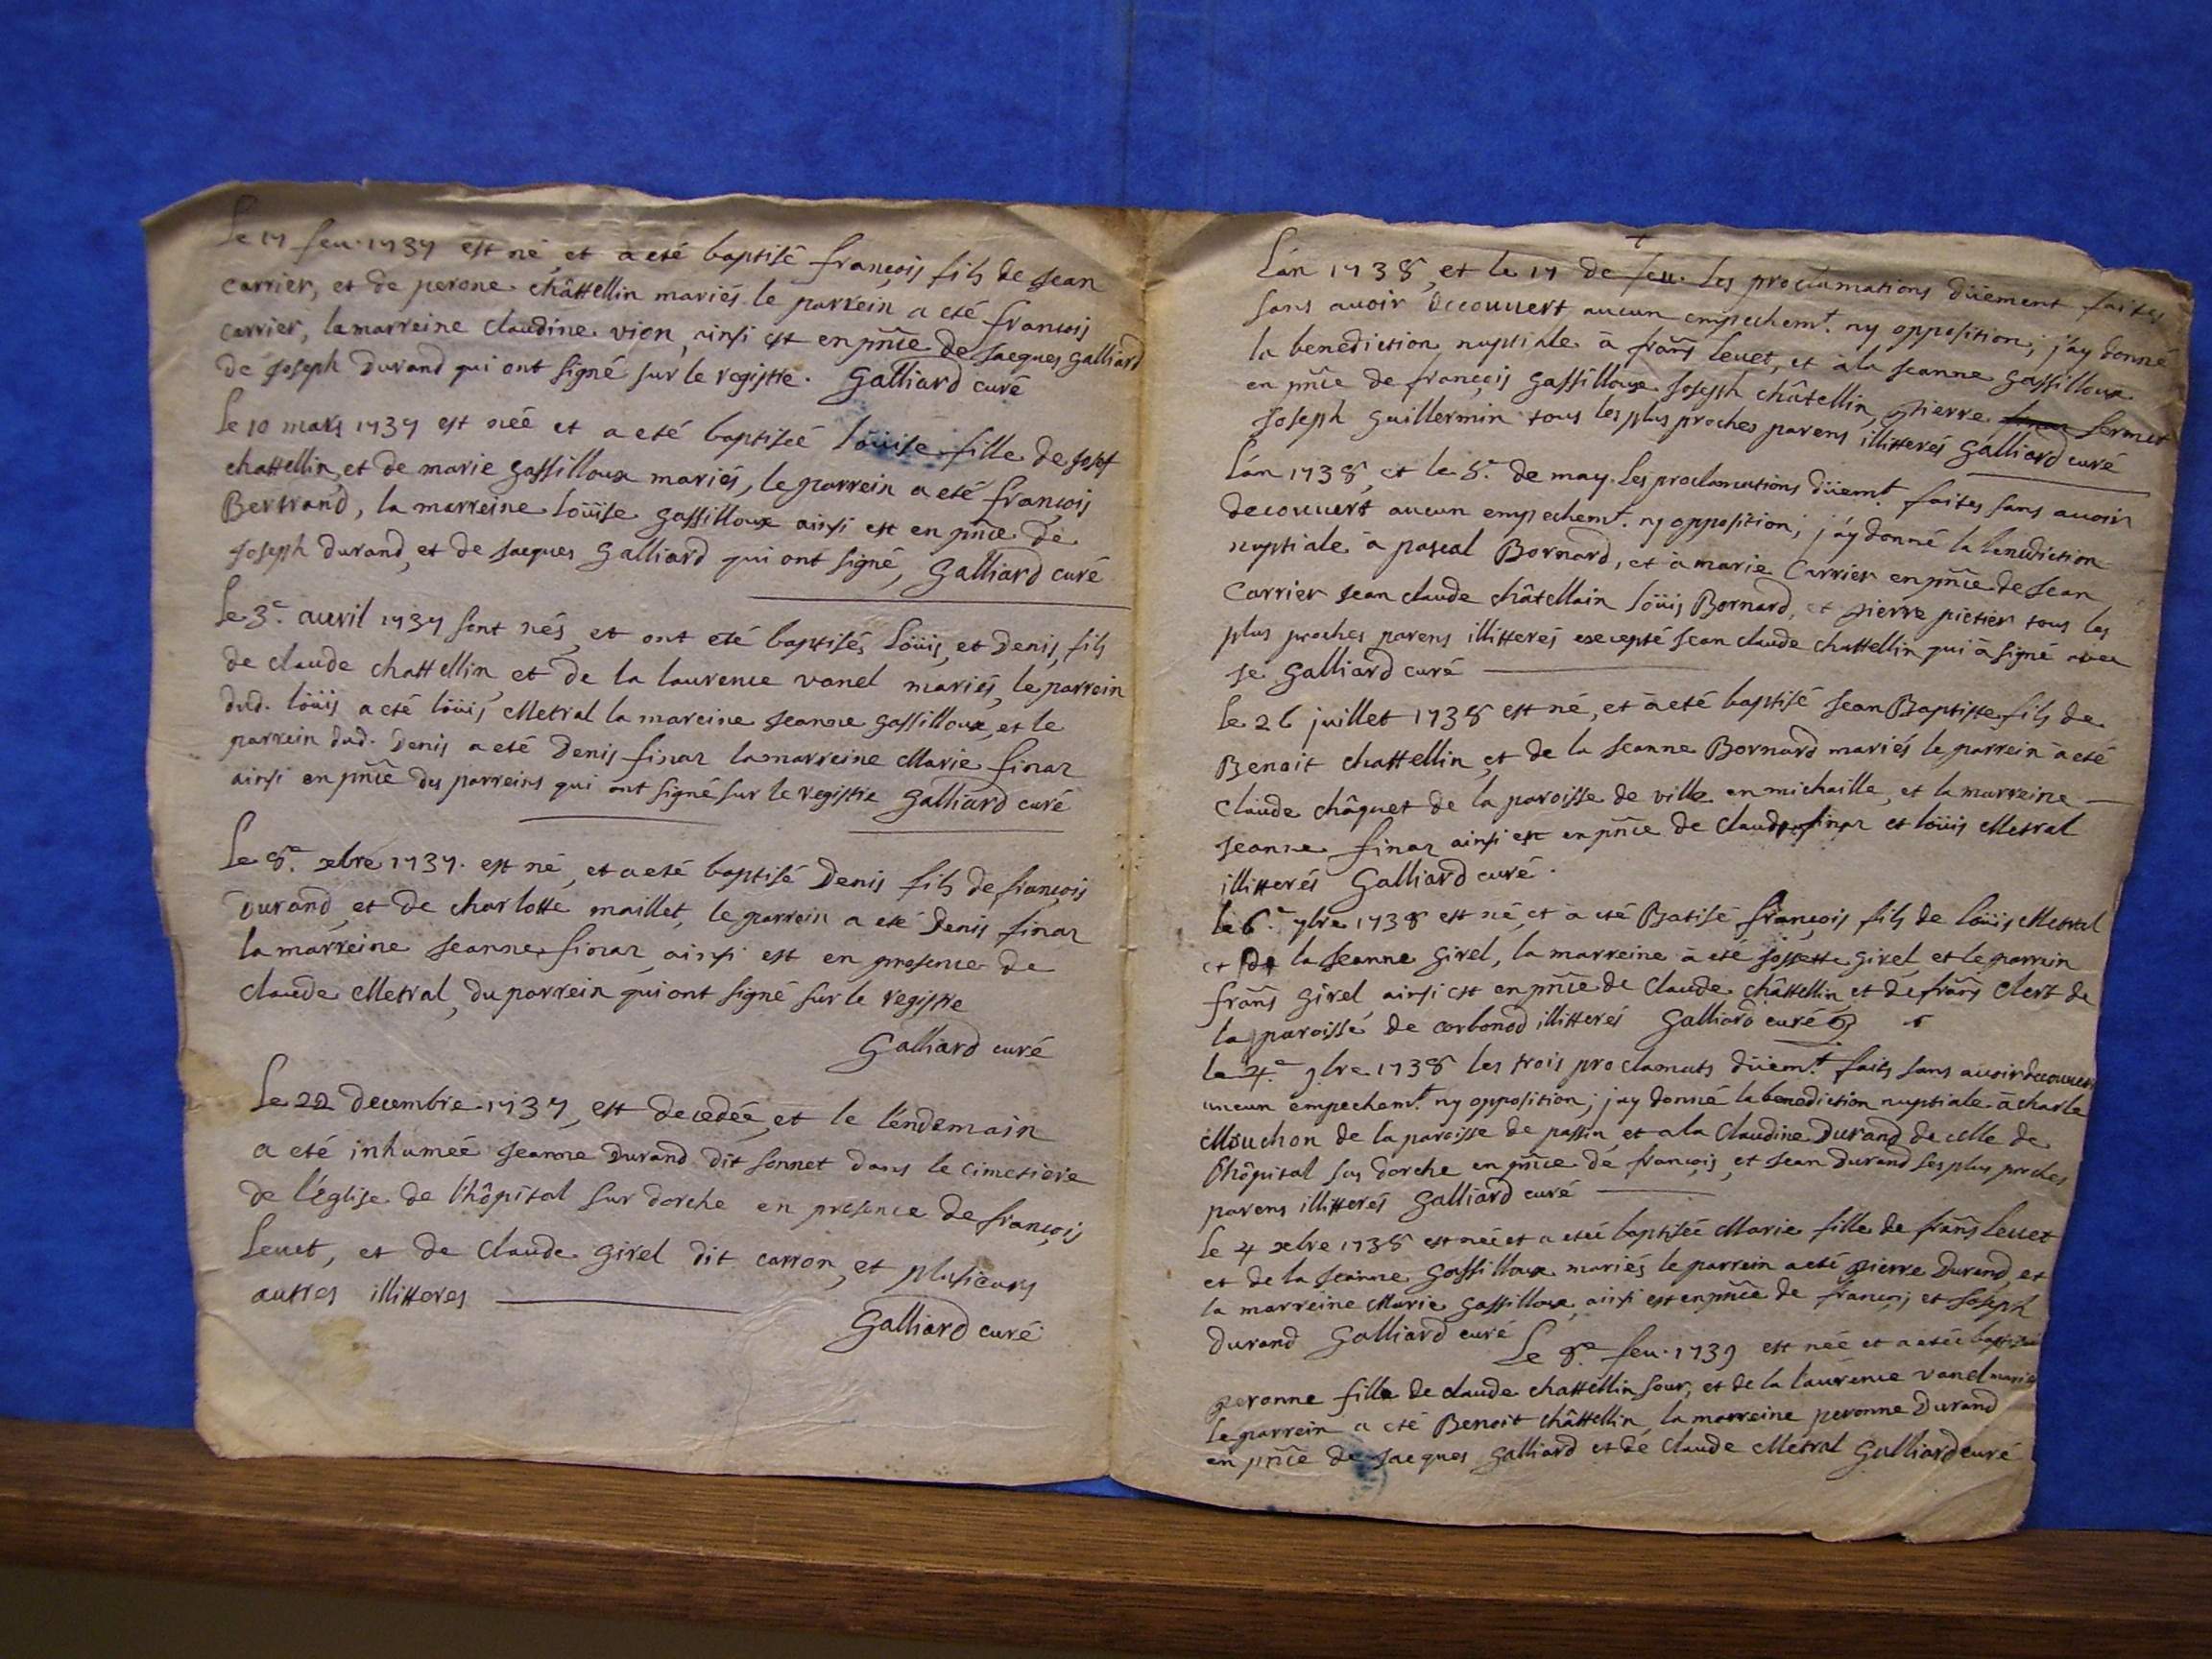 Le 17 feu. 1737 est né, et a eté baptisé françois fils de Jean
Carrier, et de perone châttellin mariés le parrein a eté françois
Carrier, la marreine Claudine vion, ainsi est en pñce de Jacques Galliard
de Joseph Durand qui ont signé sur le registre. Galliard curé
Le 10 mars 1737 est néé et a eté baptiséé Loüise fille de Josef
chattellin, et de marie Gassilloux mariés, le parrein a eté françois
Bertrand, la marreine Loüise Gassilloux ainsi est en pñce de
Joseph Durand, et de Jacques Galliard qui ont signé, Galliard curé
Le 3.e auril 1737 sont nés, et ont eté baptisés Loüis, et Denis, fils
de claude chattellin et de la laurence vanel mariés, le parrein
dud. loüis a eté loüis Metral la mareine Jeanne Gassilloux, et le
parrein dud. Denis a eté Denis finaz la marreine Marie finaz
ainsi en pñce des parreins qui ont signé sur le registre Galliard curé
Le 8.e xbre 1737. est né, et a eté baptisé Denis fils de françois
Durand, et de charlotte maillet, le parrein a eté Denis finaz
la marreine Jeanne finaz, ainsi est en presence de
claude Metral, du parrein qui ont signé sur le registre
Galliard curé
Le 22 decembre 1737, est decedée, et le lendemain
a eté inhuméé Jeanne Durand dit sonnet dans le cimetière
de l'église de l'hôpital sur dorche en presence de françois
Leuet, et de Claude Girel dit carron, et plusieurs
autres illitteres
Galliard curé
L'an 1738, et le 17 de feu. Les proclamations düement faites
sans auoir decouuert aucun empechem.t ny opposition, j'ay donné
la benediction nuptiale à frañs Leuet, et à la Jeanne Gassilloux
en pñce de françois Gassilloux Joseph châtellin, pierre sermet
Joseph Guillermin tous les plus proches parens illitterés Galliard curé
L'an 1738, et le 8.e de may. Les proclamations düem.t faites sans auoir
decouuert aucun empechem.t ny opposition, j'ay donné la benediction
nuptiale à pascal Bornard, et à marie Carrier en pñce de Jean
Carrier Jean claude châtellain Loüis Bornard, et pierre pictier tous les
plus proches parens illitterés excepté Jean claude chattellin qui à signé avec
Je Galliard curé
Le 26 juillet 1738 est né, et à eté baptisé Jean Baptiste fils de
Benoit chattellin et de la Jeanne Bornard mariés le parrein à eté
Claude châquet de la paroisse de ville en michaille, et la marreine
Jeanne finaz ainsi est en pñce de Claude finaz et loüis Metral
illitterés Galliard curé.
le 6.e 9bre 1738 est né, et à eté Batisé françois fils de loüis Metral
et de la Jeanne Girel, la marreine à eté Jossette Girel et le parrein
frañs Girel ainsi est en pñce de Claude châttellin et de frañs Clert de
la paroisse de corbonod illitterés Galliard curé
le 4.e 9bre 1738 les trois proclamats düem.t faits sans auoir decouuert
aucun empechem.t ny opposition, j'ay donné la benediction nuptiale à charle
Mouchon de la paroisse de passin, et a la Claudine Durand de celle de
l'hôpital sus dorche en pñce de françois, et Jean Durand ses plus proches
parens illitterés Galliard curé
Le 4 xbre 1738 est néé et a etéé baptiséé Marie fille de frañs Leuet
et de la Jeanne Gassilloux mariés le parrein a eté pierre Durand, et
la marreine Marie Gassilloux, ainsi est en pñce de françois et Joseph
Durand Galliard curé
Le 8.e feu. 1739 est néé et a etéé baptiséé
peronne fille de claude chattellin sour, et de la laurence vanel mariés
le parrein a eté Benoit châttellin, la marreine peronne Durand
en pñce de Jacques Galliard et de Claude Metral Galliard curé